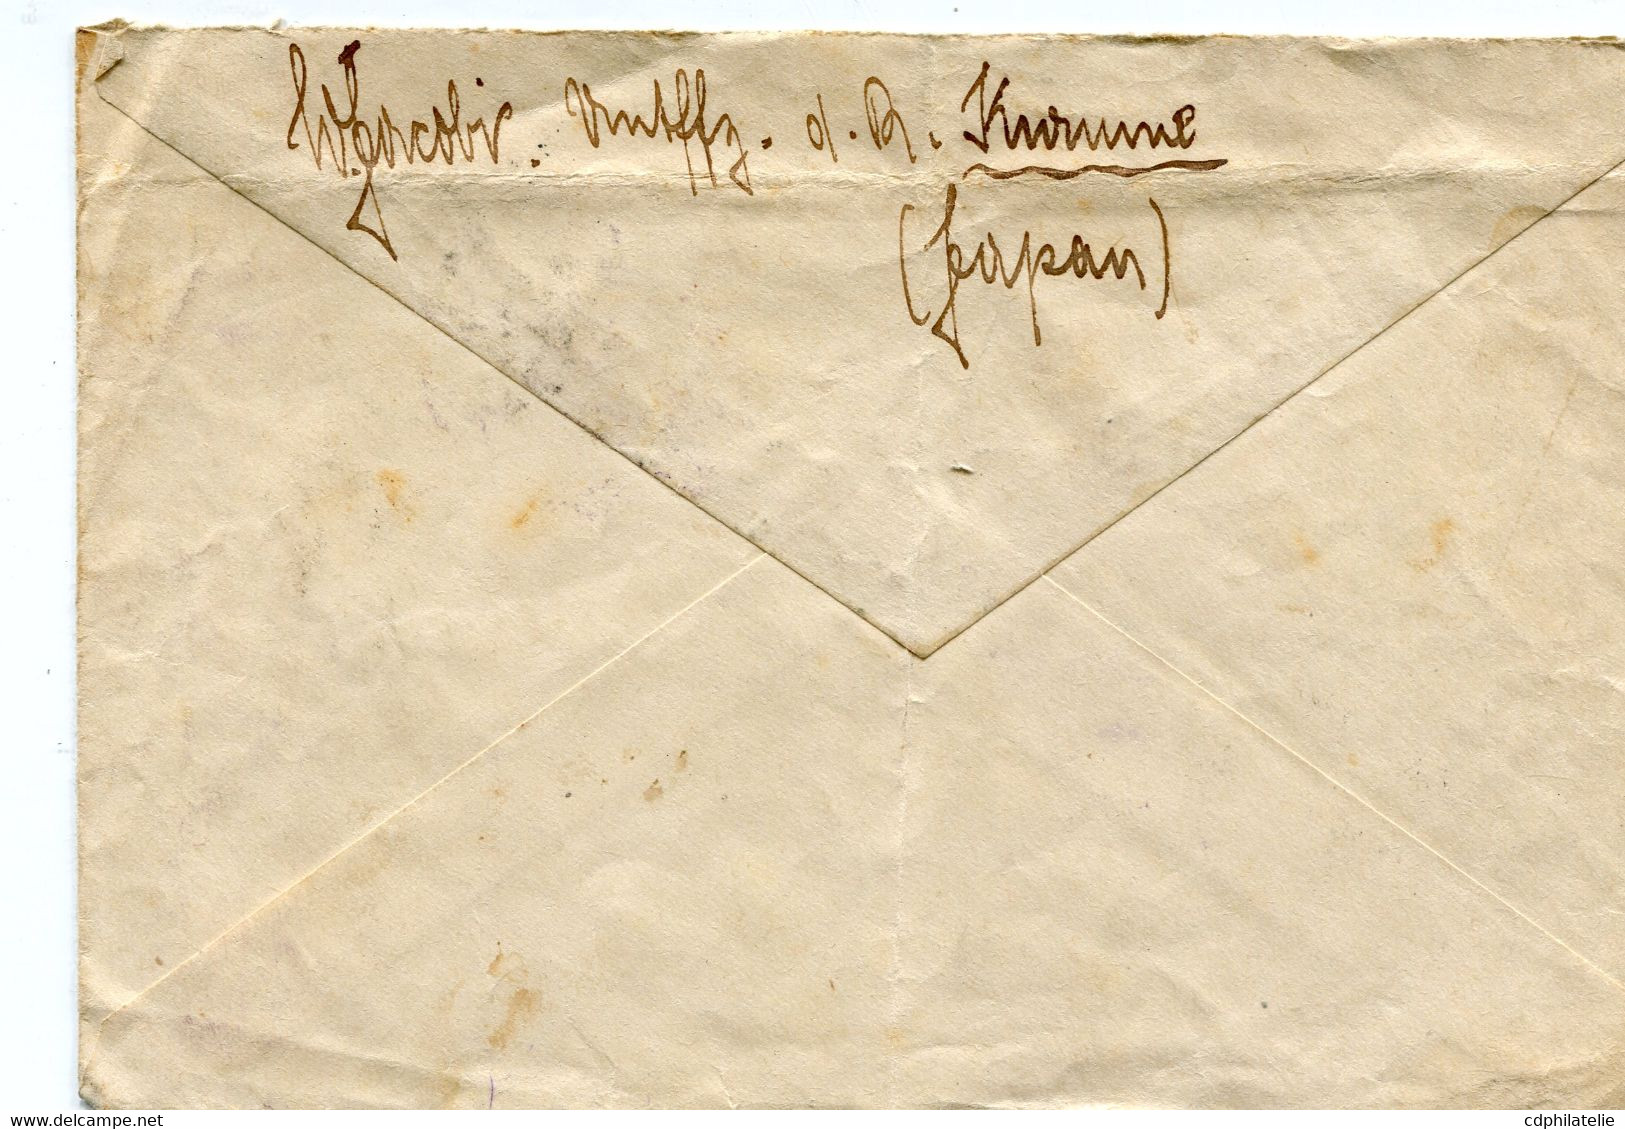 W. Jacobi. Untffz. d. R. Kurume
(Japan)
www.delcampe.net
cdphilatelie